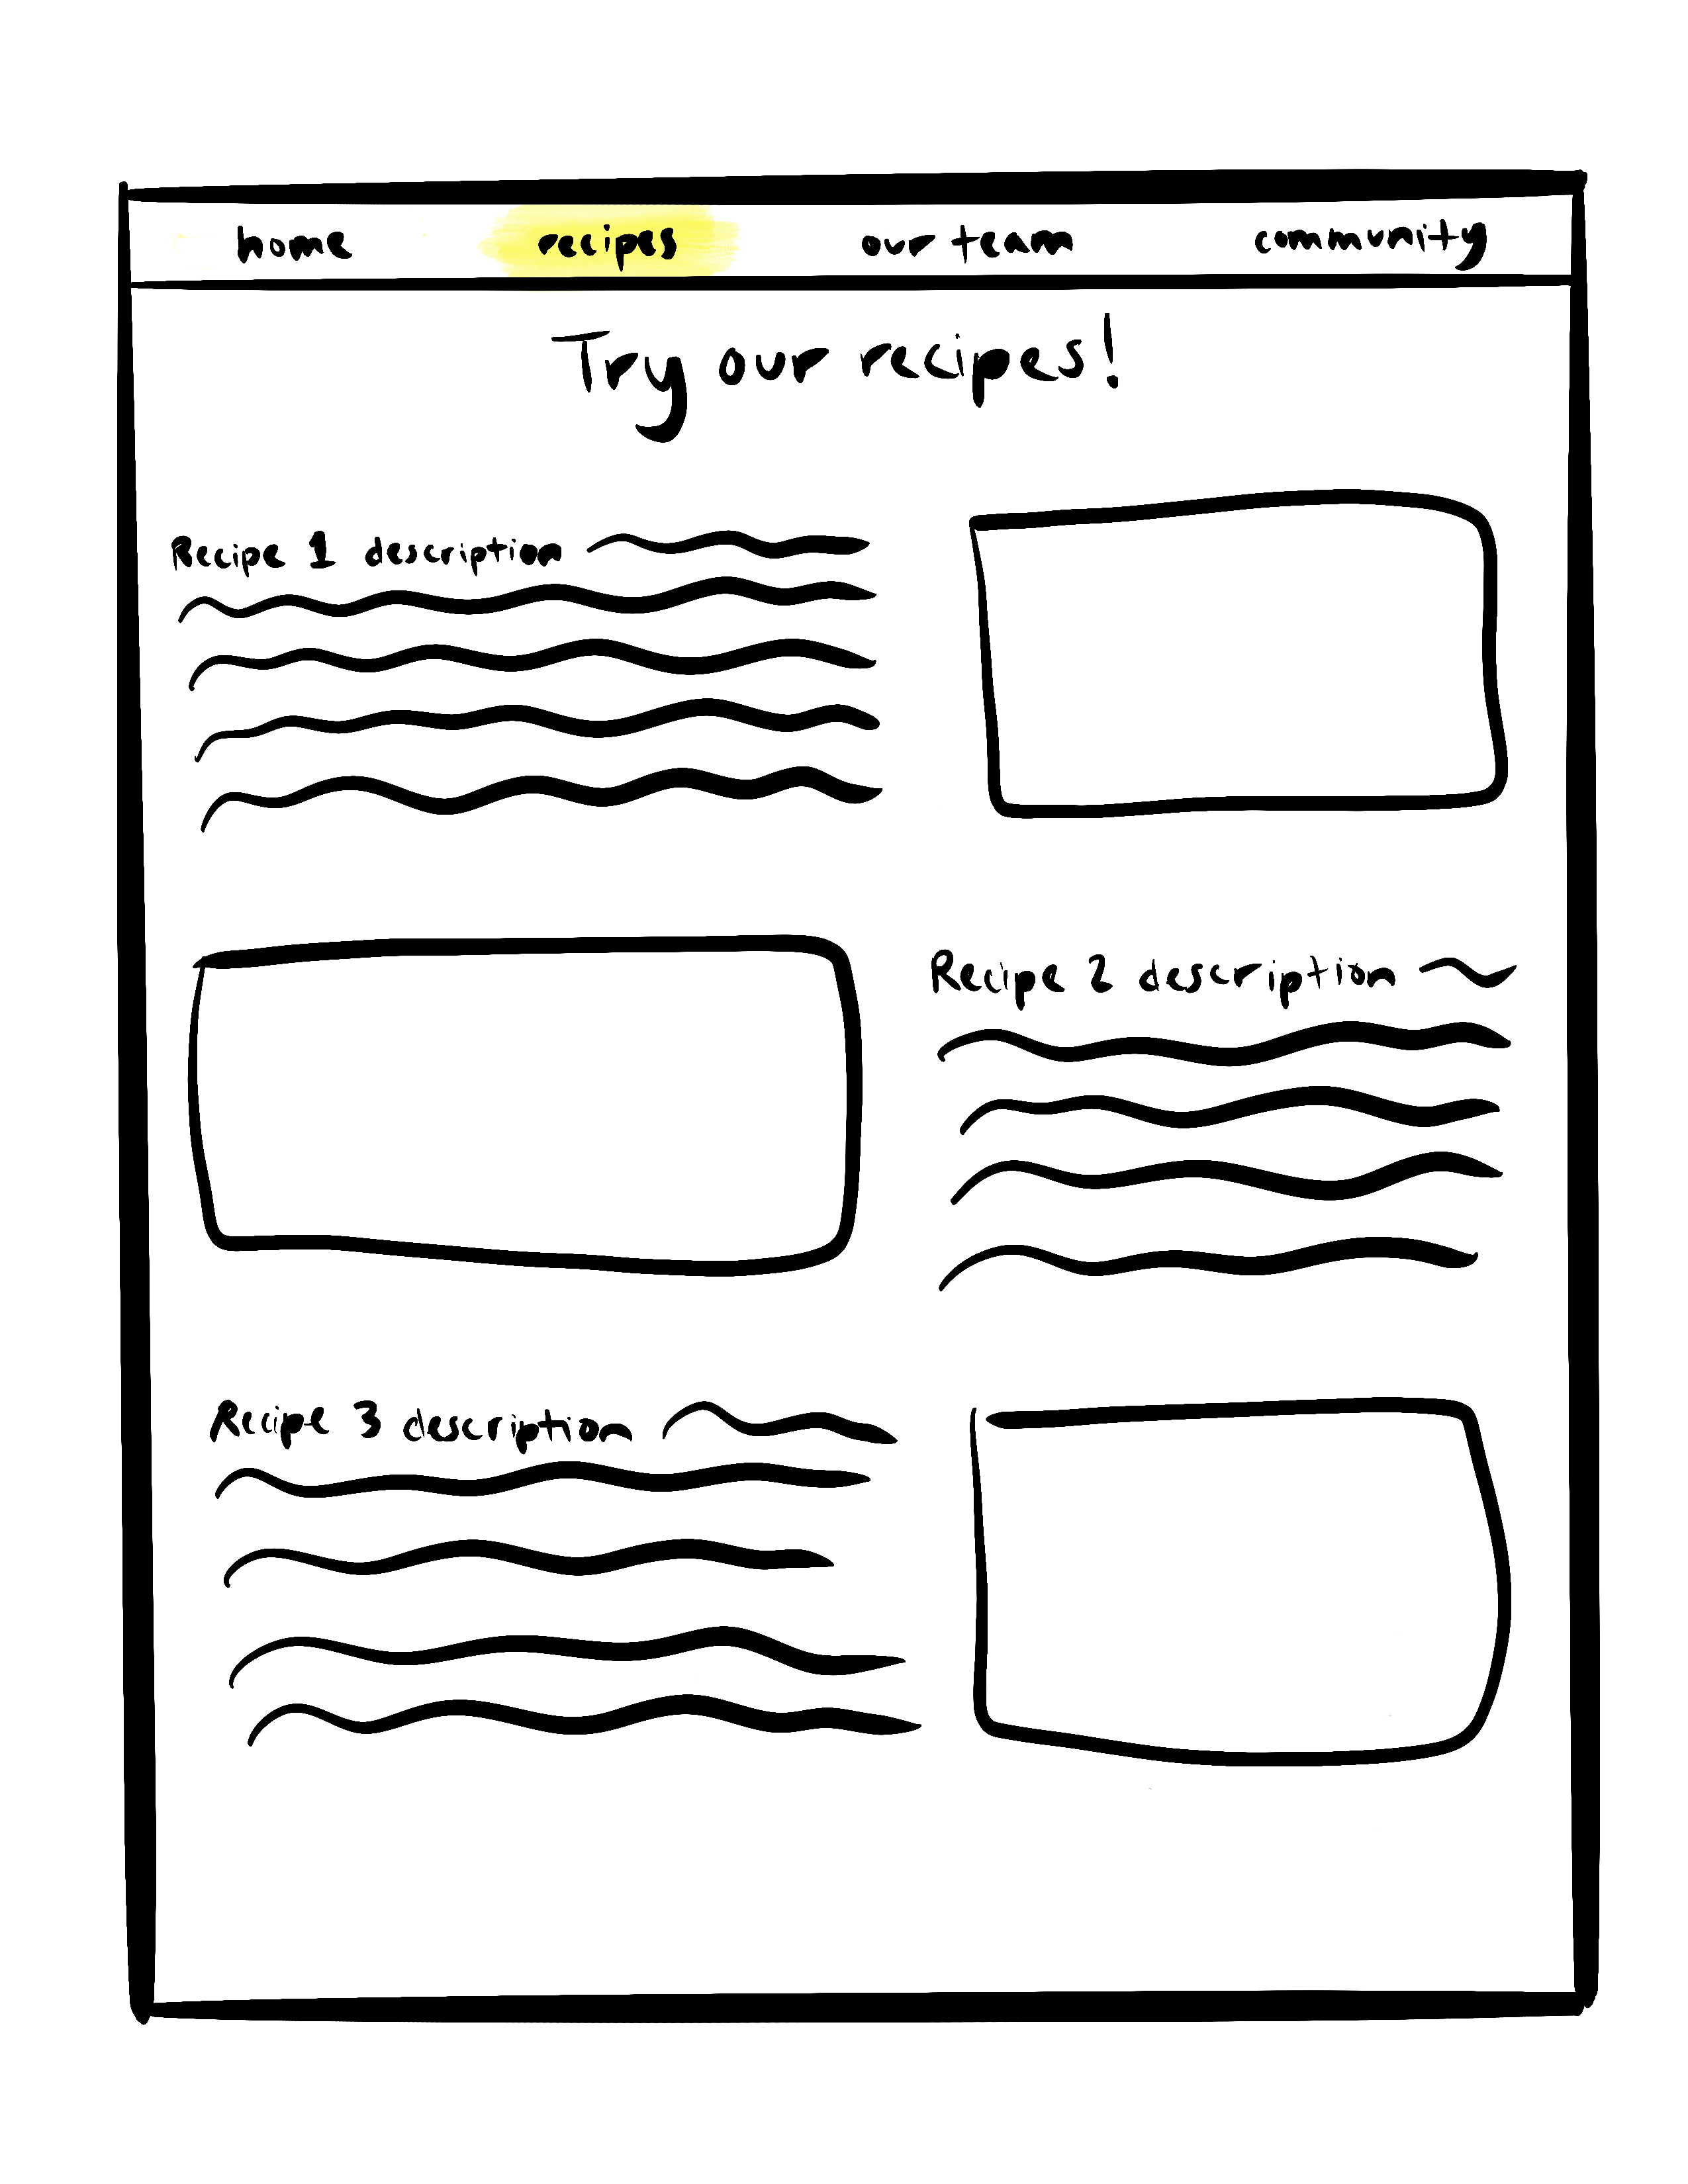 home recipes our team community
Try our recipes!
Recipe 1 description
Recipe 2 description
Recipe 3 description